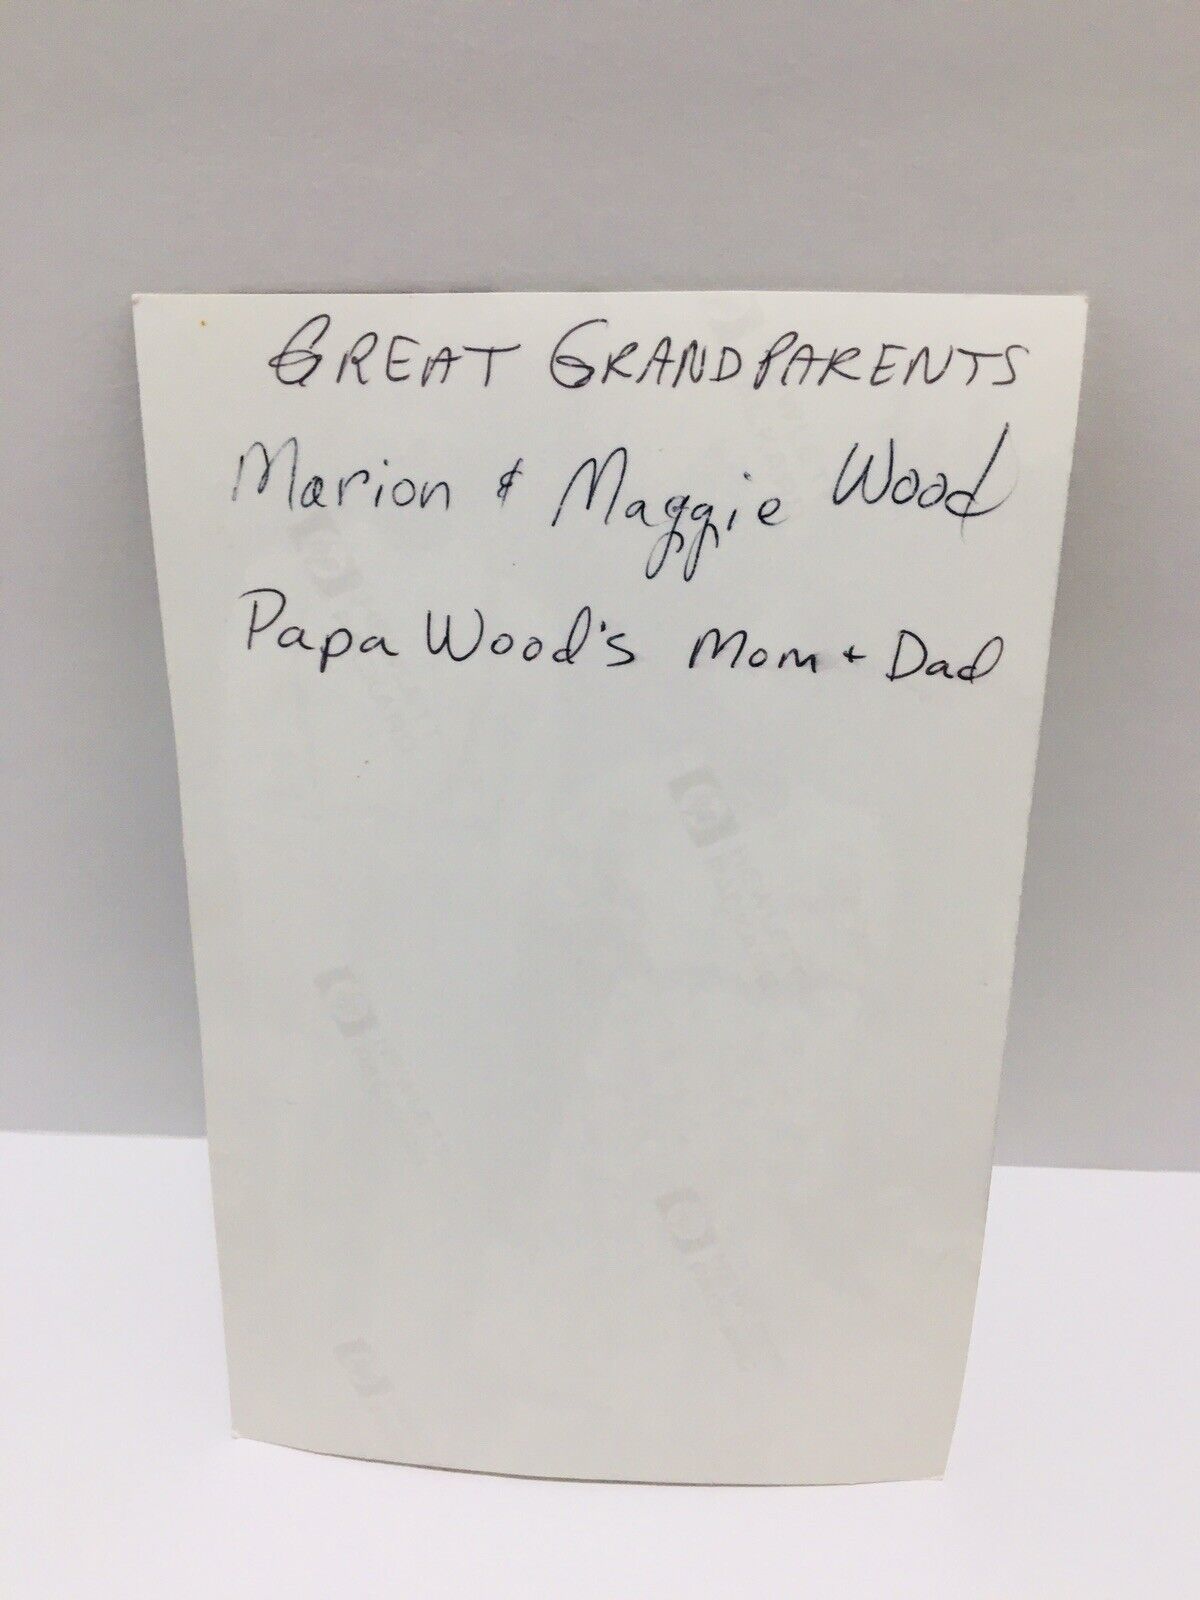 GREAT GRANDPARENTS
Marion & Maggie Wood
Papa Wood's Mom + Dad